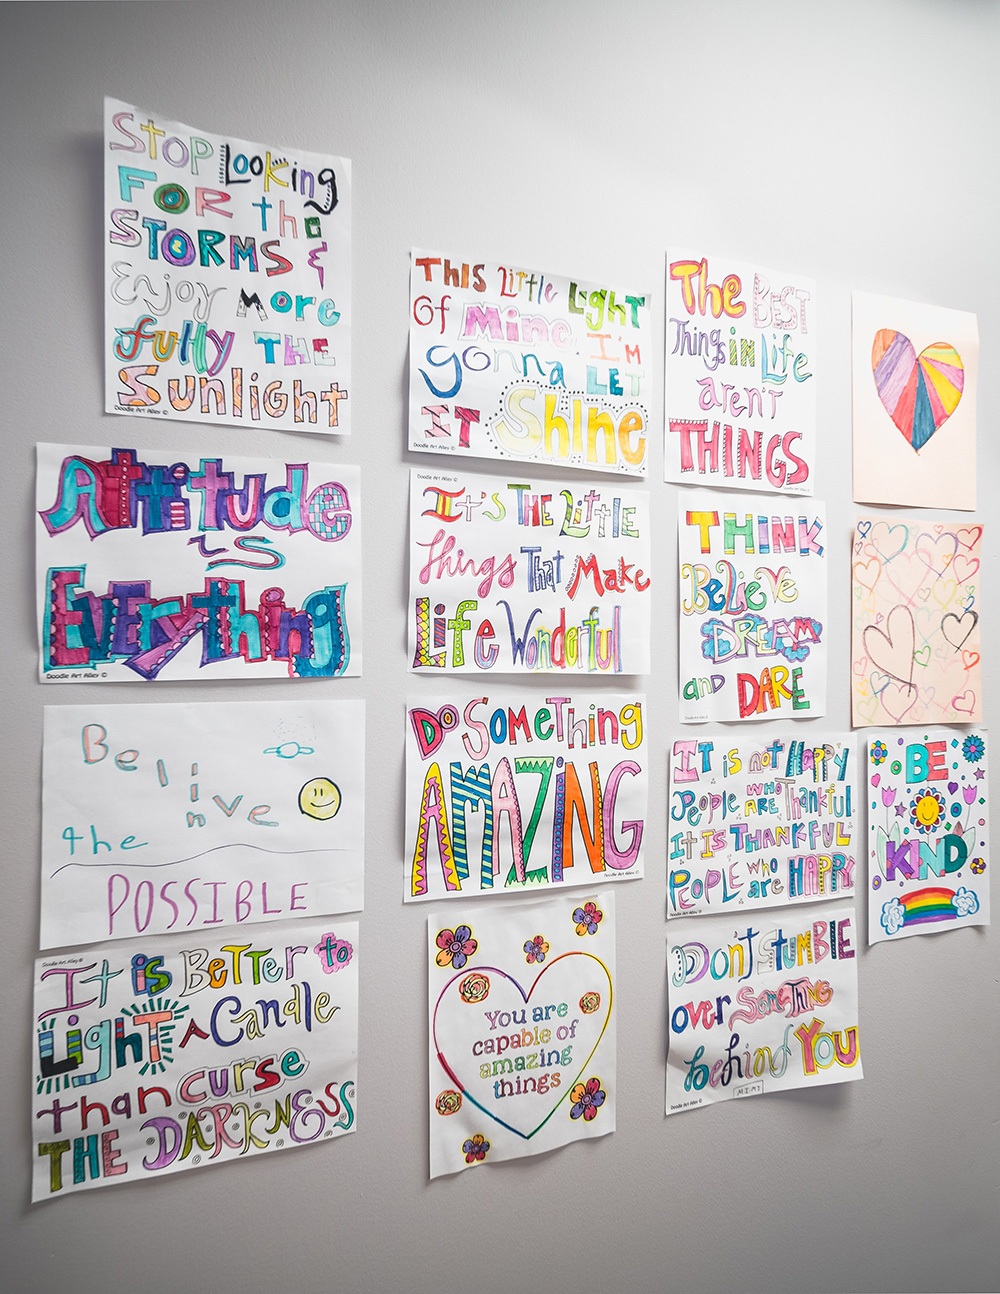 STOP LOOKing
FOR the
STORMS &
Enjoy MoRe
fully THE
Sunlight
Doodle Art Alley ©
Attitude
is
EVERything
Doodle Art Alley ©
Believe
the
POSSIBLE
Doodle Art Alley ©
It is BeTTer to
LighT A Candle
than curse
THE DARKNESS
THIS Little LIGHT
Of Mine, I'M
gonna LET
IT SHINE
Doodle Art Alley ©
Doodle Art Alley ©
It's THE Little
things That Make
Life Wonderful
Do Something
AMAZING
Doodle Art Alley ©
You are
capable of
amazing
things
The BEST
Things iN Life
aren't
THINGS
Doodle Art Alley ©
THINK
BeLieve
DREAM
and DARE
Doodle Art Alley ©
IT is not Happy
People WHO ARE Thankful.
It IS THANKFUL
PEOPLE who are HAPPY.
Doodle Art Alley ©
Don't STUMBLE
over SOMETHING
behind YOU
M.I.M.I
Doodle Art Alley ©
BE
KIND